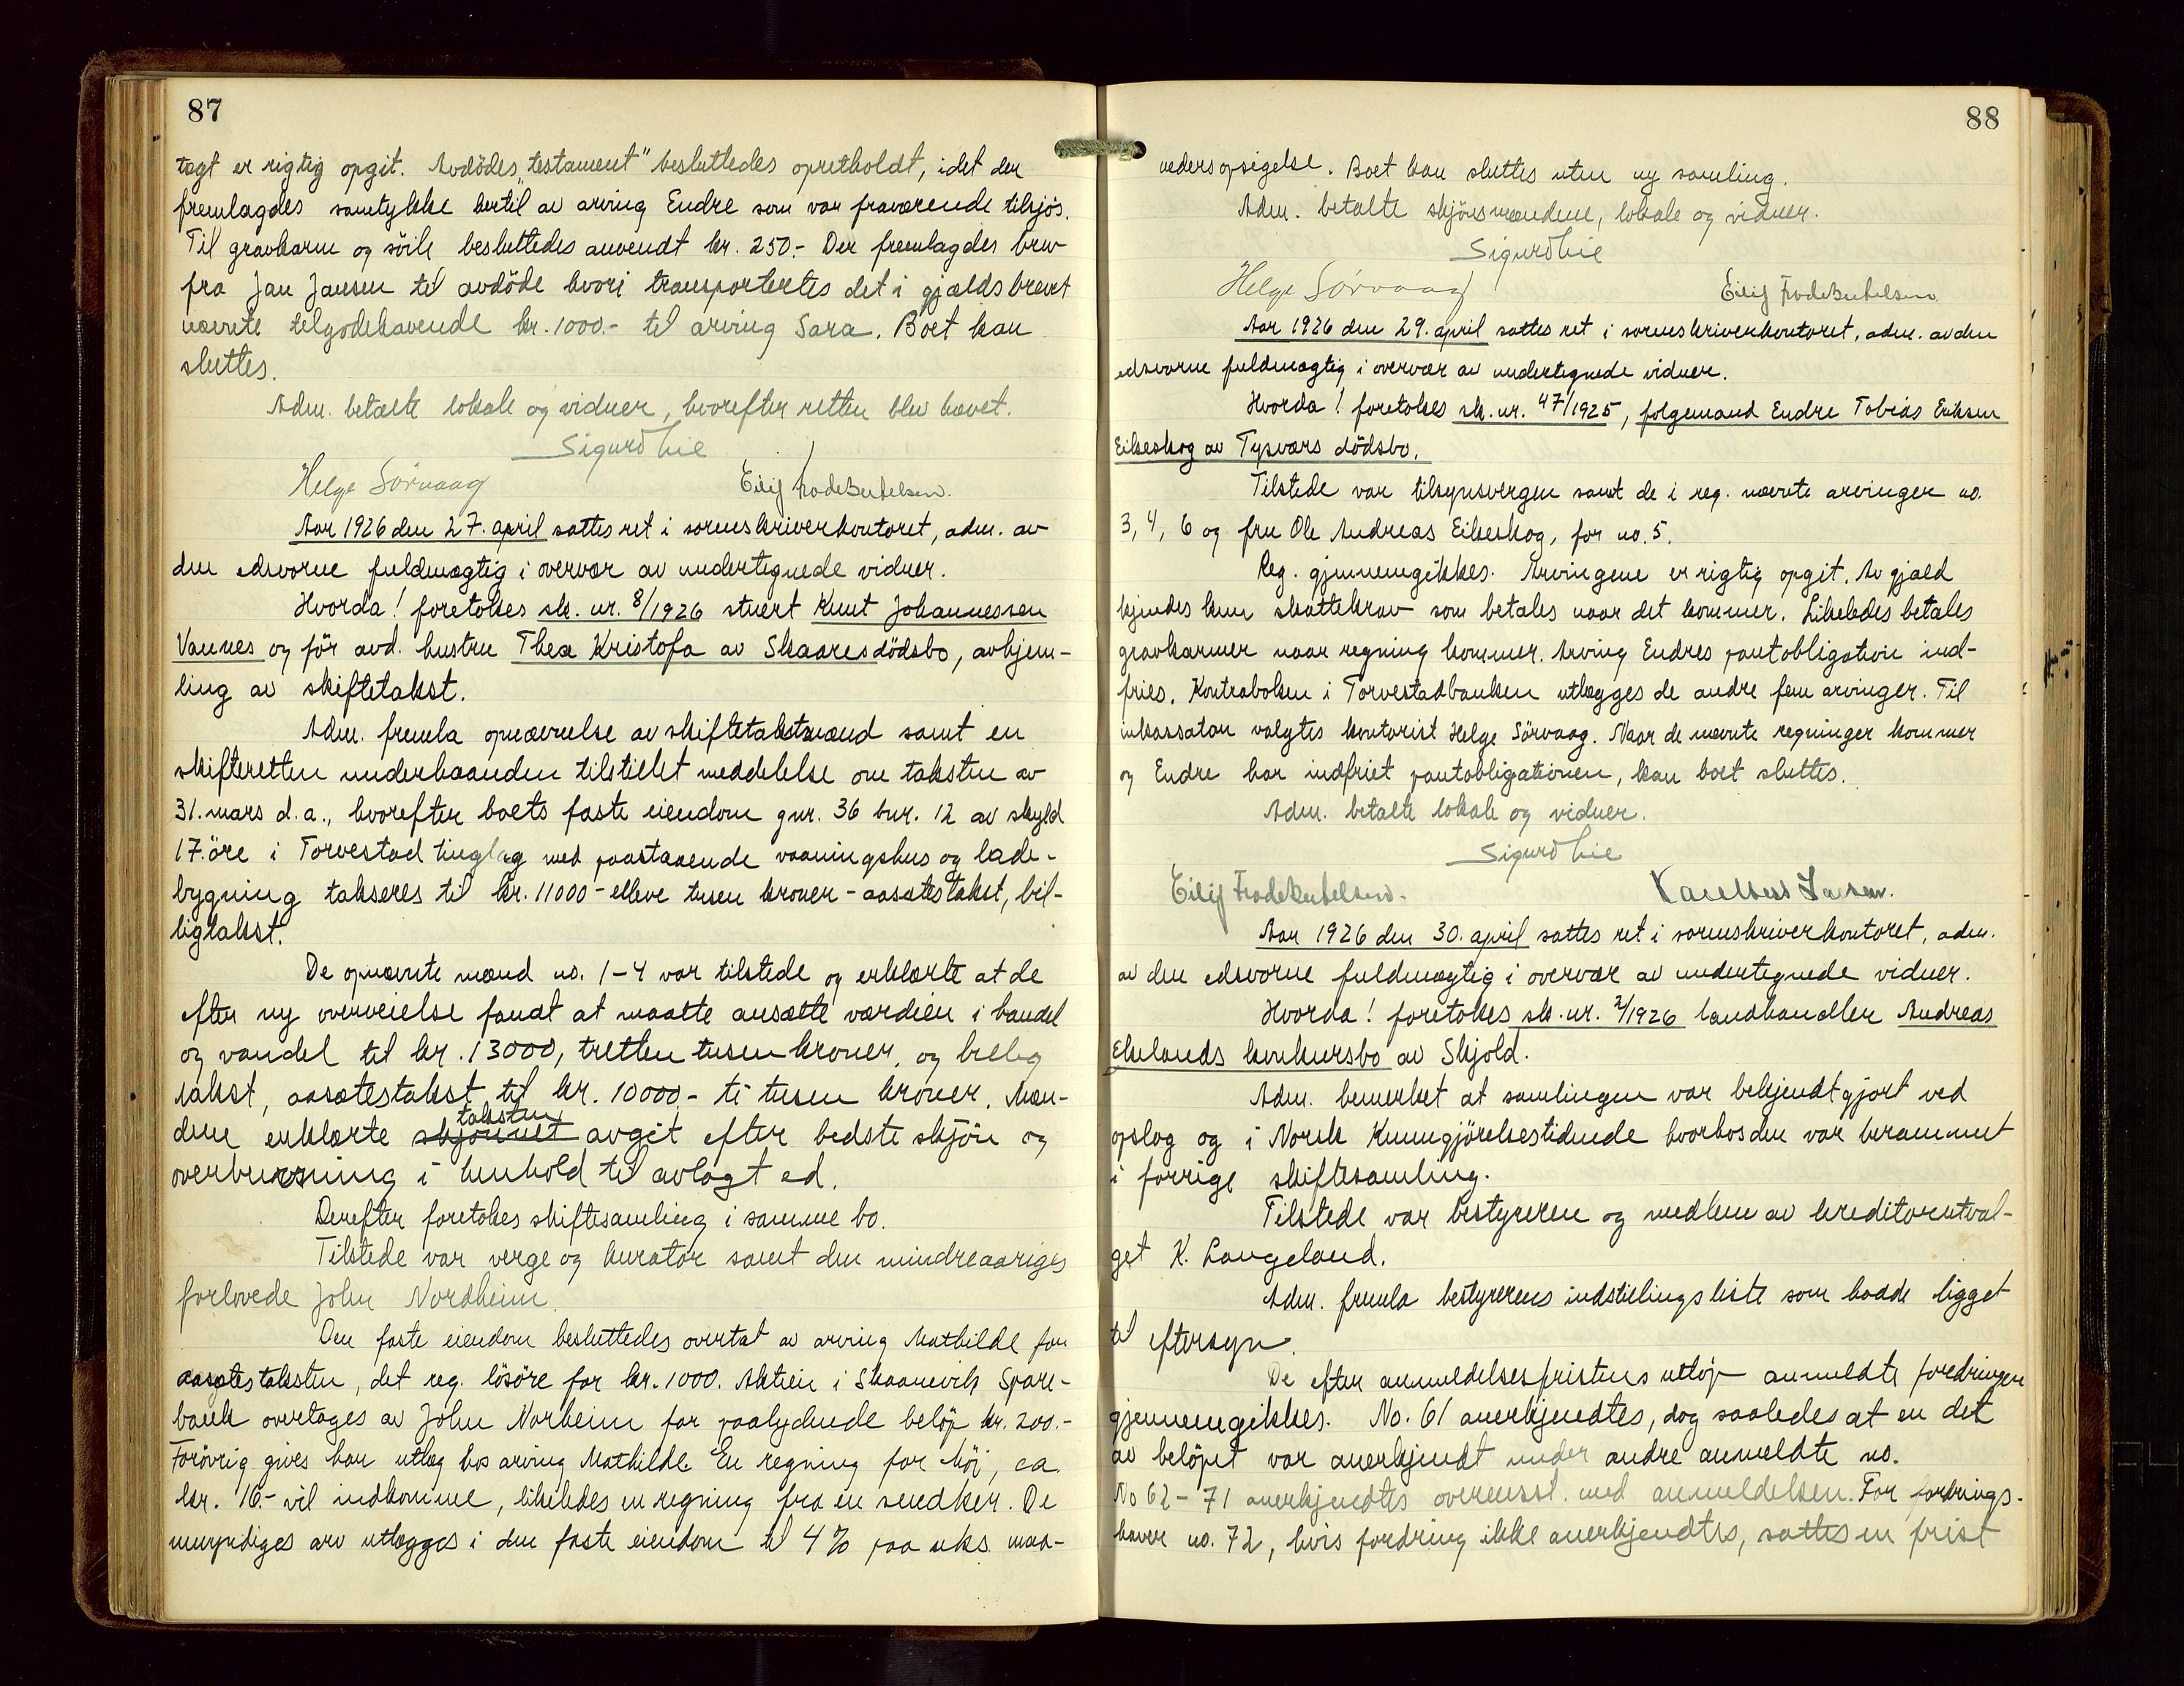 87
tagt er rigtig opgit. Avdödes "testament" besluttedes opretholdt, idet der
fremlagdes samtykke hertil av arving Endre som var fraværende tilsjös.
Til gravkarm og söile besluttedes anvendt kr. 250.- Der fremlagdes brev
fra Jan Jansen til avdöde hvori transportertes det i gjældsbrevet
nævnte tilgodehavende kr. 1000.- til arving Sara. Boet kan
sluttes.
Adm. betalte lokale og vidner, hvorefter retten blev hævet.
Sigurd Lie
Helge Sörvaag Eilif Frode Bertelsen.
Aar 1926 den 27. april sattes ret i sorenskriverkontoret, adm. av
den edsvorne fuldmægtig i overvær av undertegnede vidner.
Hvorda! foretokes sk. nr. 8/1926 stuert Knut Johannessen
Vannes og för avd. hustru Thea Kristofa av Skaares dödsbo, avhjem-
ling av skiftetakst.
Adm. fremla opnævnelse av skiftetakstmænd samt en
skifteretten underhaanden tilstillet meddelelse om taksten av
31. mars d.a., hvorefter boets faste eiendom gnr. 36 bnr. 12 av skyld
17 öre i Torvestad tinglag med paastaaende vaaningshus og lade-
bygning takseres til kr. 11000 - elleve tusen kroner - aasætestakst, bil-
ligtakst.
De opnævnte mænd no. 1-4 var tilstede og erklærte at de
efter ny overveielse fandt at maatte ansætte værdien i handel
og vandel til kr. 13000, tretten tusen kroner, og billig
takst, aasætestakst til kr. 10000.- ti tusen kroner. Mæn-
taksten
dene erklærte skjönnet avgit efter bedste skjön og
overbevisning i henhold til avlagt ed.
Derefter foretokes skiftesamling i samme bo.
Tilstede var verge og kurator samt den mindreaariges
forlovede John Nordheim.
Den faste eiendom besluttedes overtat av arving Mathilde for
aasætestaksten, det reg. lösöre for kr. 1000. Aktien i Skaanevik Spare-
bank overtages av John Norheim for paalydende belöp kr. 200.-
Forövrig gives han utlæg hos arving Mathilde. En regning for höi, ca
kr. 16.- vil indkomme, likeledes en regning fra en snedker. De
umyndiges arv utlægges i den faste eiendom til 4% paa seks maa-
88
neders opsigelse. Boet kan sluttes uten ny samling.
Adm. betalte skjönsmændene, lokale og vidner.
Sigurd Lie
Helge Sörvaag Eilif Frode Bertelsen
Aar 1926 den 29. april sattes ret i sorenskriverkontoret, adm. av den
edsvorne fuldmægtig i overvær av undertegnede vidner.
Hvorda! foretokes sk. nr. 47/1925, følgemand Endre Tobias Eriksen
Eikeskog av Tysværs dödsbo.
Tilstede var tilsynsvergen samt de i reg. nævnte arvinger no.
3, 4, 6 og fru Ole Andreas Eikeskog, for no. 5.
Reg. gjennemgikkes. Arvingene er rigtig opgit. Av gjæld
kjendes kun skattekrav som betales naar det kommer. Likeledes betales
gravkarmer naar regning kommer. Arving Endres pantobligation ind-
fries. Kontraboken i Torvestadbanken utlægges de andre fem arvinger. Til
inkassator valgtes kontorist Helge Sörvaag. Naar de nævnte regninger kommer
og Endre har indfriet pantobligationen, kan boet sluttes.
Adm. betalte lokale og vidner.
Sigurd Lie
Eilif Frode Bertelsen. Larsen.
Aar 1926 den 30. april sattes ret i sorenskriverkontoret, adm.
av den edsvorne fuldmægtig i overvær av undertegnede vidner.
Hvorda! foretokes sk. nr. 2/1926 landhandler Andreas
Ekelands konkursbo av Skjold.
Adm. bemerket at samlingen var bekjendtgjort ved
opslag og i Norsk Kunngjörelsestidende hvorhos den var berammet
i forrige skiftesamling.
Tilstede var bestyreren og medlem av kreditorutval-
get K. Langeland.
Adm. fremla bestyrerens indstillingsliste som hadde ligget
til eftersyn.
De efter anmeldelsesfristens utlöp anmeldte fordringer
gjennemgikkes. No. 61 anerkjendtes, dog saaledes at en del
av belöpet var anerkjendt under andre anmeldte no.
No 62 - 71 anerkjendtes overensst. med anmeldelsen. For fordrings-
haver no. 72, hvis fordring ikke anerkjendtes, sattes en frist